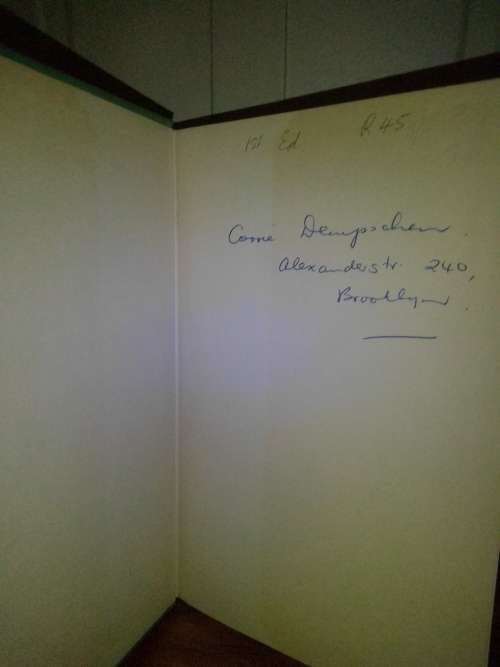 1st Ed R45
Corrié Dempschen.
Alexanderstr. 240,
Brooklyn.